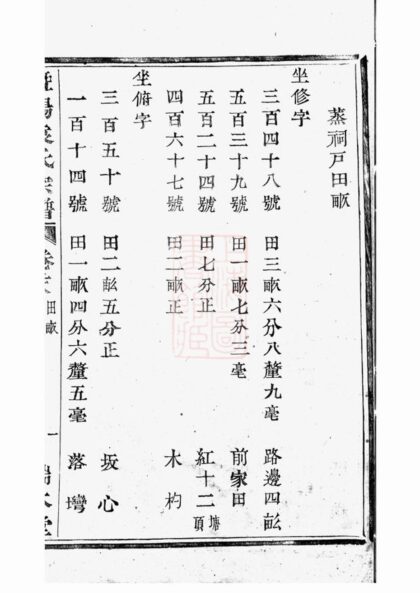 蒸祠戶田畝
坐修字
三百四十八號 田三畝六分八釐九毫 路邊四畝
五百三十九號 田一畝七分三毫 前家田
五百二十四號 田七分正 紅十二塘頭
四百六十七號 田二畝正 木杓
坐俯字
三百五十號 田二畝五分正 坂心
一百十四號 田一畝四分六釐五毫 落彎
氏宗譜 田畝 一